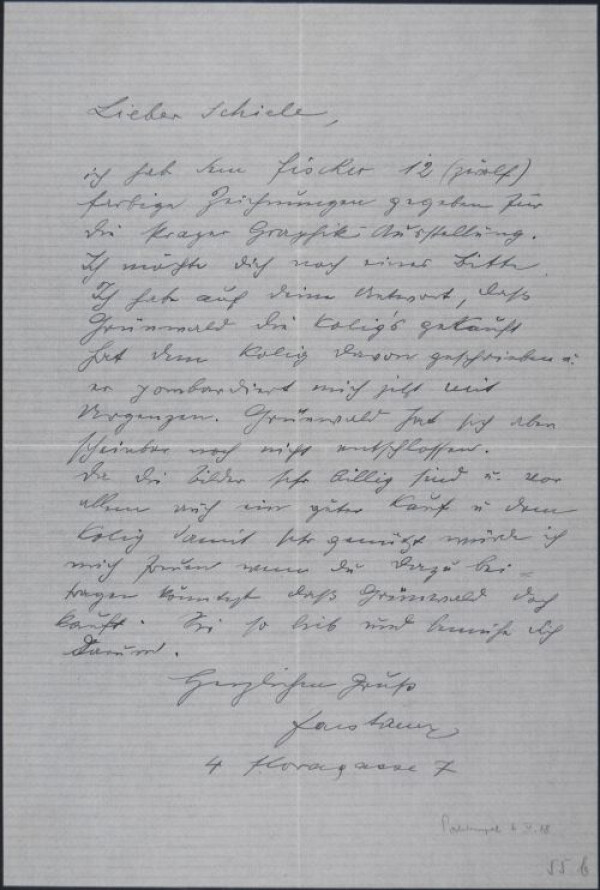 Lieber Schiele,
ich hab dem Fischer 12 (zwölf)
farbige Zeichnungen gegeben für
die Prager Graphik Ausstellung.
Ich möchte dich noch eines Bitte
Ich habe auf deine Antwort, daß
Grünwald die Kolig's gekauft
hat dem Kolig davon geschrieben u.
er bombardiert mich jetzt mit
Urgenzen. Grünwald hat sich aber
scheinbar noch nicht entschlossen.
Da die Bilder sehr billig sind u. vor
allem auch ein guter Kauf u dem
Kolig damit sehr genützt würde ich
mich freuen wenn du dazu bei-
tragen könntest daß Grünwald doch
kauft. Sei so lieb und bemühe dich
darum.
Herzlichen Gruß
Faistauer
4 Floragasse 7
55 b